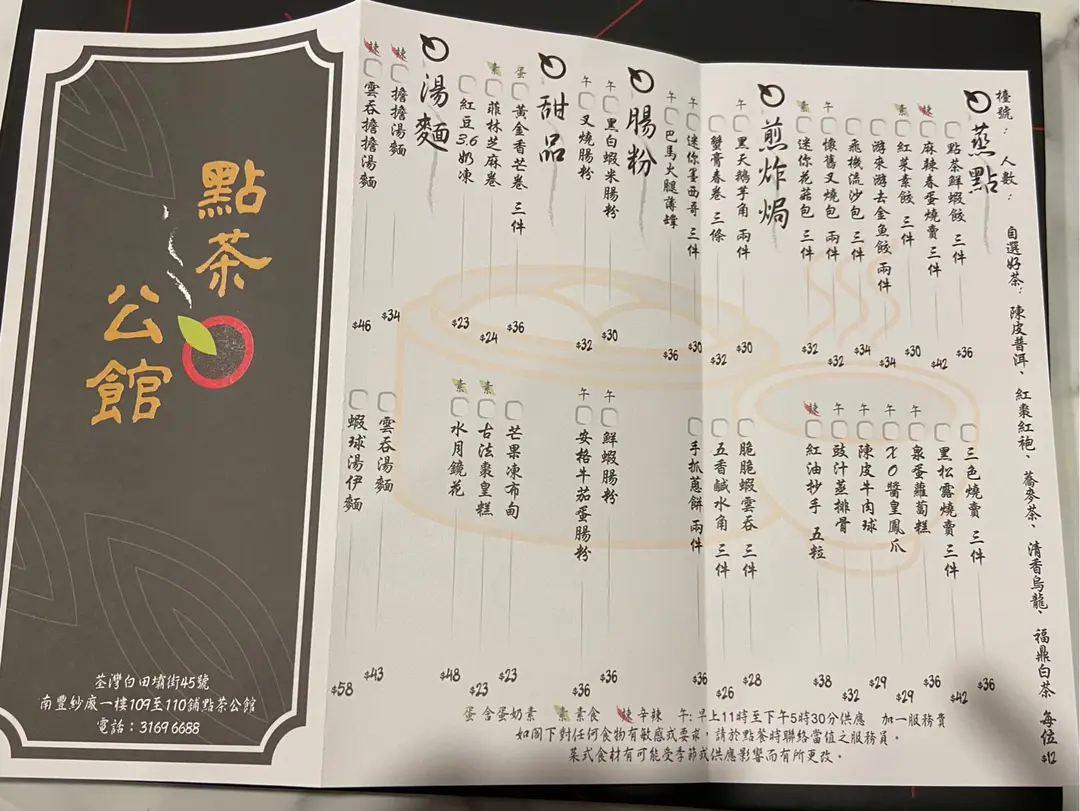 點茶
公館
荃灣白田壩街45號
南豐紗廠一樓109至110舖點茶公館
電話：3169 6688
檯號： 人數：
自選好茶：陳皮普洱、紅棗紅袍、蕎麥茶、清香烏龍、福鼎白茶 每位 $12
蒸點
點茶鮮蝦餃 三件 $36
辣 麻辣春蛋燒賣 三件 $42
素 紅菜素餃 三件 $30
游來游去金魚餃 兩件 $34
飛機流沙包 三件 $34
午 懷舊叉燒包 兩件 $32
素 迷你花菇包 三件 $32
三色燒賣 三件 $36
黑松露燒賣 三件 $42
午 泉蛋蘿蔔糕 $36
午 XO醬皇鳳爪 $29
午 陳皮牛肉球 $29
午 豉汁蒸排骨 $32
辣 紅油抄手 五粒 $38
煎炸焗
午 黑天鵝芋角 兩件 $30
蟹膏春卷 三條 $32
午 迷你墨西哥 三件 $30
午 巴馬火腿薄罉 $36
脆脆蝦雲吞 三件 $28
五香鹹水角 三件 $26
手抓蔥餅 兩件 $36
腸粉
午 黑白蝦米腸粉 $30
午 叉燒腸粉 $32
午 鮮蝦腸粉 $36
午 安格牛茄蛋腸粉 $36
甜品
蛋 黃金香芒卷 三件 $36
素 菲林芝麻卷 $24
紅豆3.6奶凍 $23
芒果凍布甸 $23
素 古法棗皇糕 $23
素 水月鏡花 $48
湯麵
辣 擔擔湯麵 $34
辣 雲吞擔擔湯麵 $46
雲吞湯麵 $43
蝦球湯伊麵 $58
蛋 含蛋奶素 素 素食 辣 辛辣 午：早上11時至下午5時30分供應 加一服務費
如閣下對任何食物有敏感或要求，請於點餐時聯絡當值之服務員。
菜式食材有可能受季節或供應影響而有所更改。